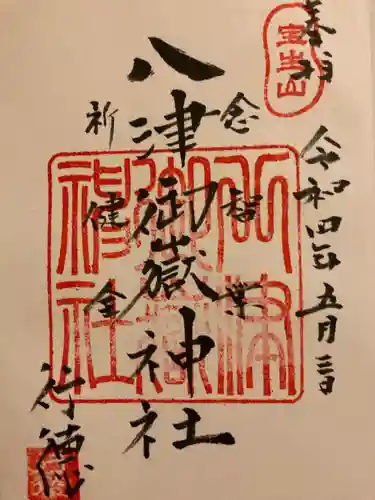 奉拝
宝生山
令和四年五月三日
念智業
八津御嶽神社
祈健全
八津
御嶽
神社
行徳